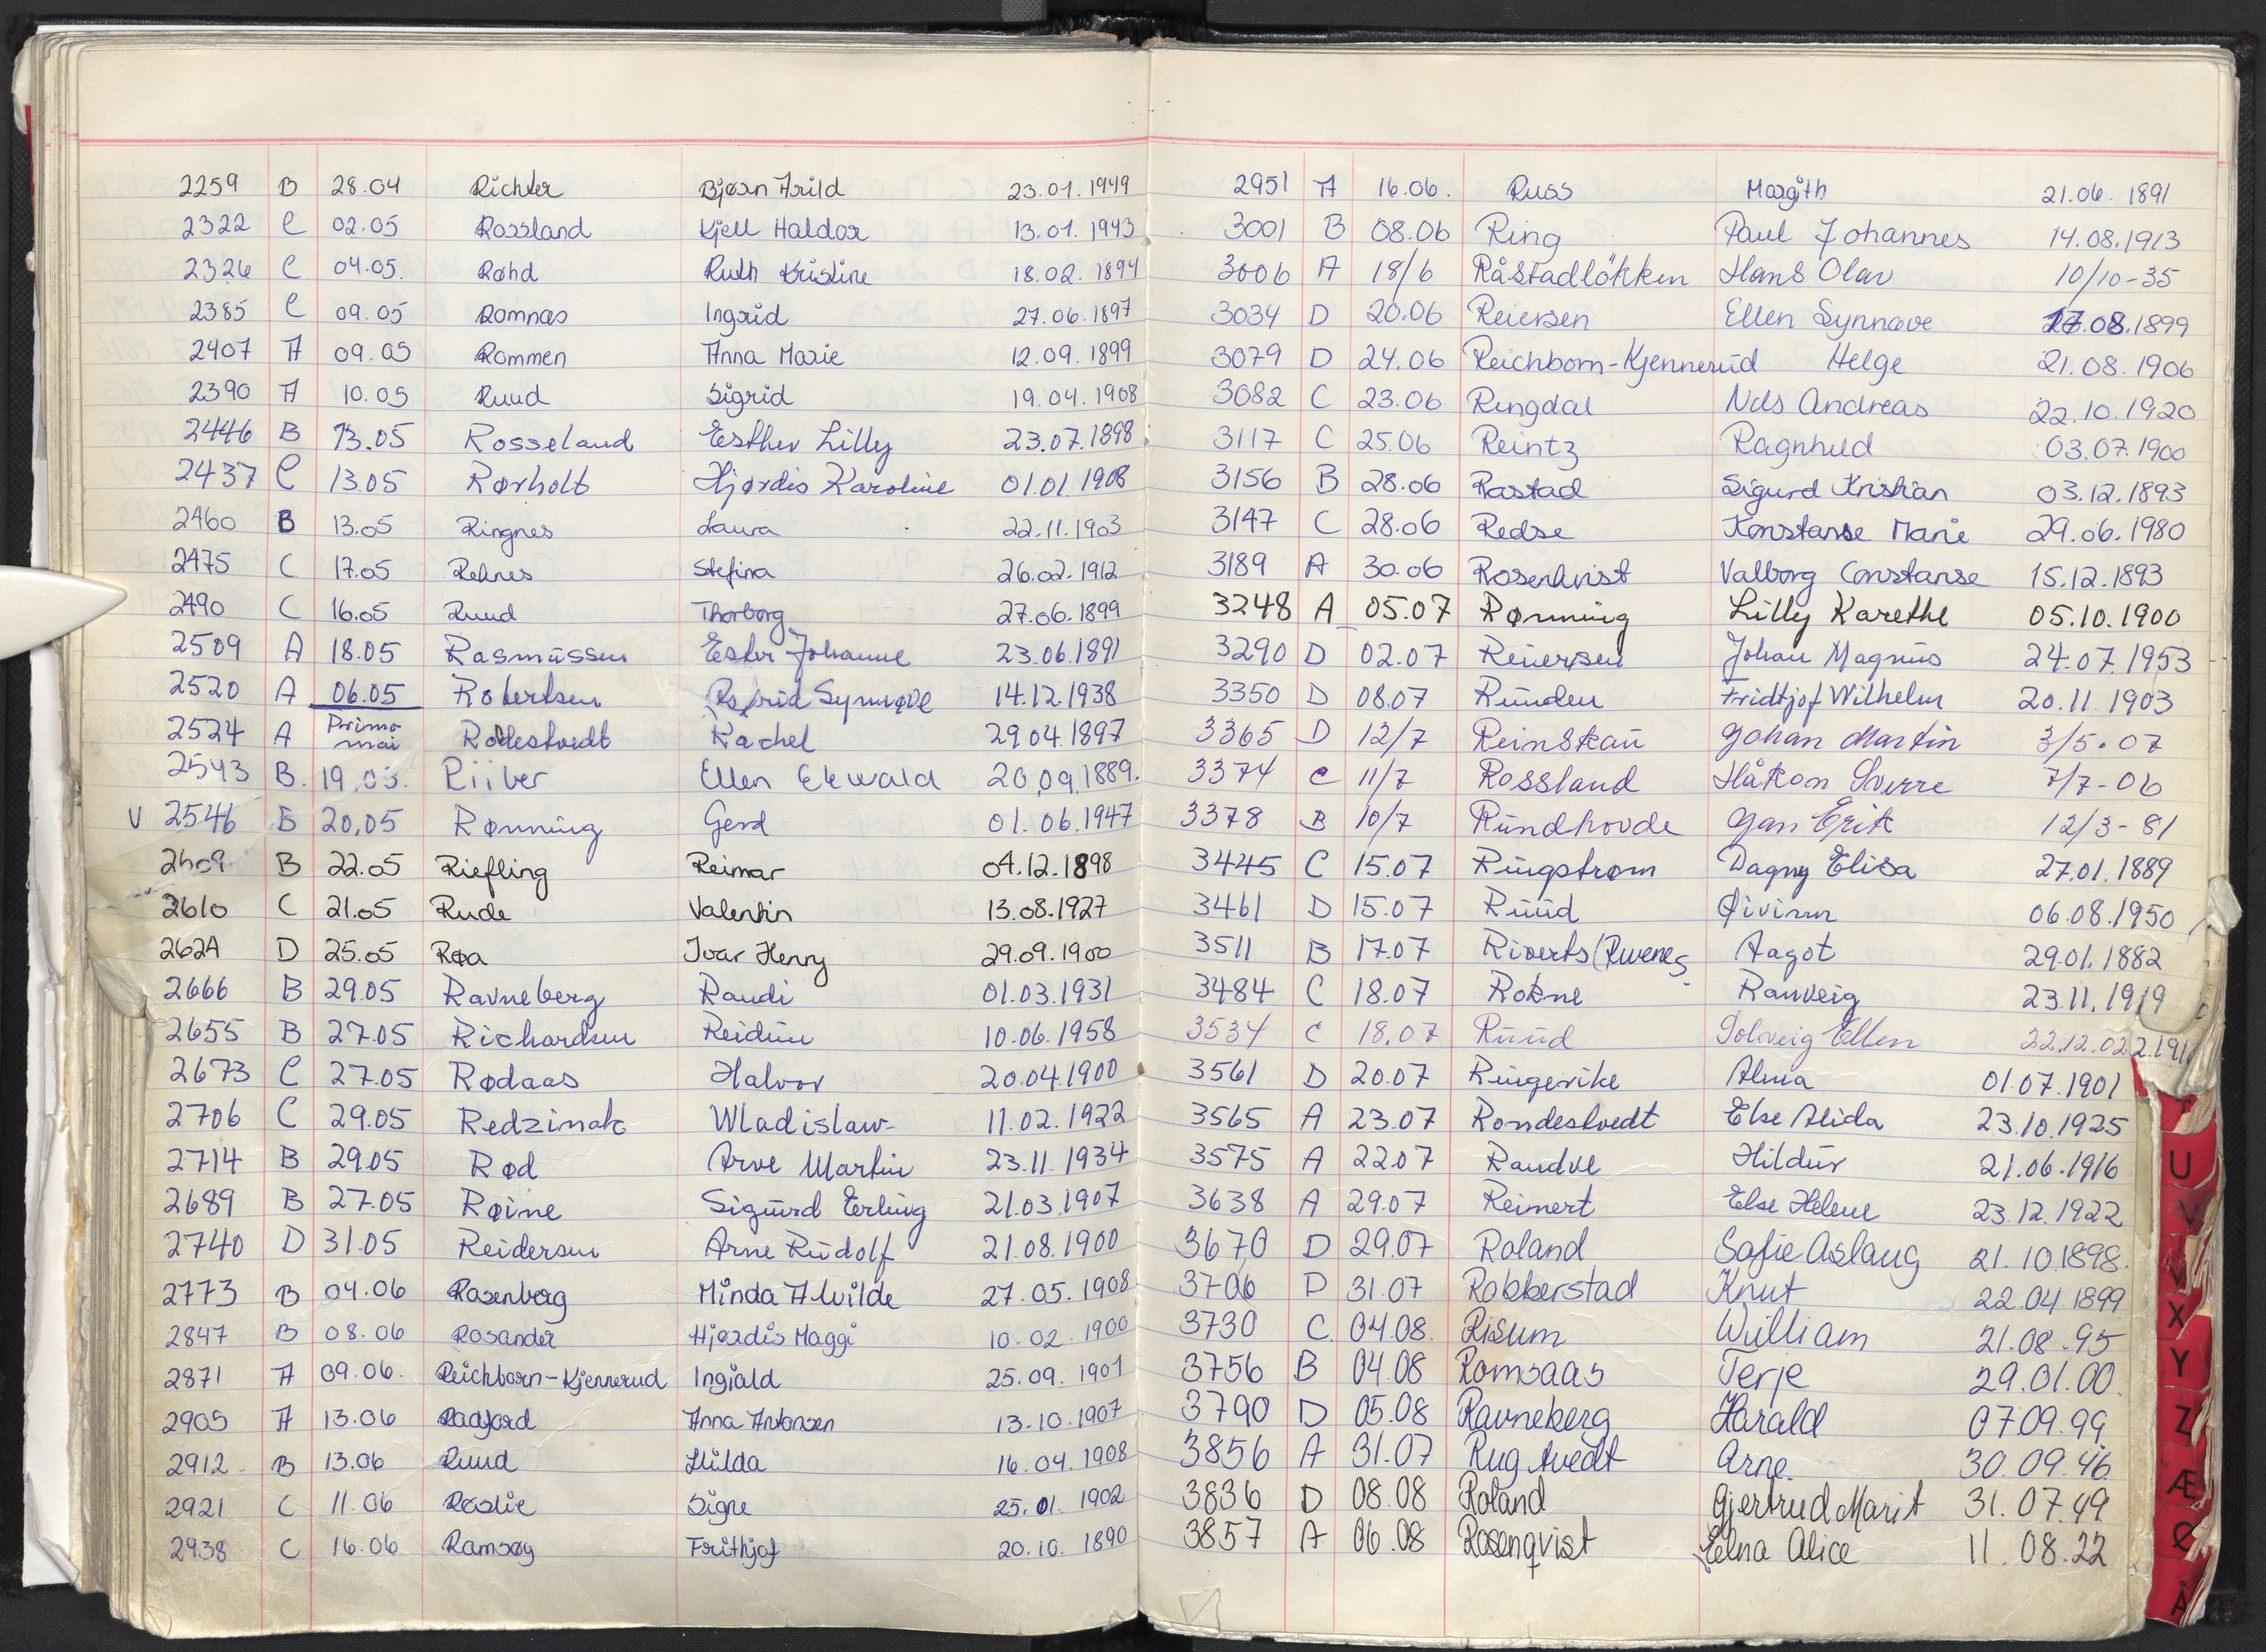 2259 B 28.04 Richter Bjørn Arild 23.01.1949
2322 C 02.05 Rossland Kjell Haldor 13.01.1943
2326 C 04.05. Røhd Ruth Kristine 18.02.1894
2385 C 09.05 Romnæs Ingrid 27.06.1897
2407 A 09.05 Rommen Anna Marie 12.09.1899
2390 A 10.05 Ruud Sigrid 19.04.1908
2446 B 13.05 Rosseland Esther Lilly 23.07.1898
2437 C 13.05 Rørholt Hjørdis Karoline 01.01.1908
2460 B 13.05 Ringnes Laura 22.11.1903
2475 C 17.05 Reknes Stefina 26.02.1912
2490 C 16.05 Ruud Thorborg 27.06.1899
2509 A 18.05 Rasmussen Ester Johanne 23.06.1891
2520 A 06.05 Robertsen Astrid Synnøve 14.12.1938
2524 A Primo mai Rollestvedt Rachel 29.04.1897
2543 B. 19.05. Riiber Ellen Ekwald 20.09.1889.
V 2546 B 20.05 Rønning Gerd 01.06.1947
2609 B 22.05 Riefling Reimar 04.12.1898
2610 C 21.05 Rude Valentin 13.08.1927
2624 D 25.05 Røa Ivar Henry 29.09.1900
2666 B 29.05 Ravneberg Randi 01.03.1931
2655 B 27.05 Richardsen Reidun 10.06.1958
2673 C 27.05 Rødaas Halvor 20.04.1900
2706 C 29.05 Redzimak Wladislaw 11.02.1922
2714 B 29.05 Rød Arve Martin 23.11.1934
2689 B 27.05 Røine Sigurd Erling 21.03.1907
2740 D 31.05 Reidersen Arne Rudolf 21.08.1900
2773 B 04.06 Rosenberg Minda Alvilde 27.05.1908
2847 B 08.06 Rosander Hjørdis Maggi 10.02.1900
2871 A 09.06. Reichborn-Kjennerud Ingiald 25.09.1901
2905 A 13.06 Radfjord Anna Antonsen 13.10.1907
2912 B 13.06 Ruud Hilda 16.04.1908
2921 C 11.06 Røslie Signe 25.01.1902
2938 C 16.06 Ramsøy Frithjof 20.10.1890
2951 A 16.06. Russ Margith 21.06.1891
3001 B 08.06 Ring Paul Johannes 14.08.1913
3006 A 18/6 Råstadløkken Hans Olav 10/10-35
3034 D 20.06 Reiersen Ellen Synnøve 17.08.1899
3079 D 24.06 Reichborn-Kjennerud Helge 21.08.1906
3082 C 23.06 Ringdal Nils Andreas 22.10.1920
3117 C 25.06 Reintz Ragnhild 03.07.1900
3156 B 28.06 Rastad Sigurd Kristian 03.12.1893
3147 C 28.06 Redse Konstanse Marie 29.06.1980
3189 A 30.06 Rosenkvist Valborg Constanse 15.12.1893
3248 A 05.07 Rønning Lilly Karethe 05.10.1900
3290 D 02.07 Reiersen Johan Magnus 24.07.1953
3350 D 08.07 Runden Fridtjof Wilhelm 20.11.1903
3365 D 12/7 Reinskau Johan Martin 3/5.07
3374 C 11/7 Rossland Håkon Sverre 7/7-06
3378 B 10/7 Rundhovde Jan Erik 12/3-81
3445 C 15.07 Ringstrøm Dagny Elisa 27.01.1889
3461 D 15.07 Ruud Øivinn 06.08.1950
3511 B 17.07 Riverts (Rivenes Aagot 29.01.1882
3484 C 18.07 Rokne Ranveig 23.11.1919
3534 C 18.07 Ruud Solveig Ellen 22.12.02
3561 D 20.07 Ringerike Alma 01.07.1901
3565 A 23.07 Rondestvedt Else Alida 23.10.1925
3575 A 22.07 Randve Hildur 21.06.1916
3638 A 29.07 Reinert Else Helene 23.12.1922
3670 D 29.07 Roland Sofie Aslaug 21.10.1898.
3706 D 31.07 Robberstad Knut 22.04.1899
3730 C. 04.08. Risum William 21.08.95
3756 B 04.08 Romsaas Terje 29.01.00.
3790 D 05.08 Ravneberg Harald 07.09.99
3856 A 31.07 Rugtvedt Arne. 30.09.46
3836 D 08.08 Roland Gjertrud Marit 31.07.49
3857 A 06.08 Rosenqvist Edna Alice 11.08.22
U
V
X
Y
Z
Æ
Ø
Å